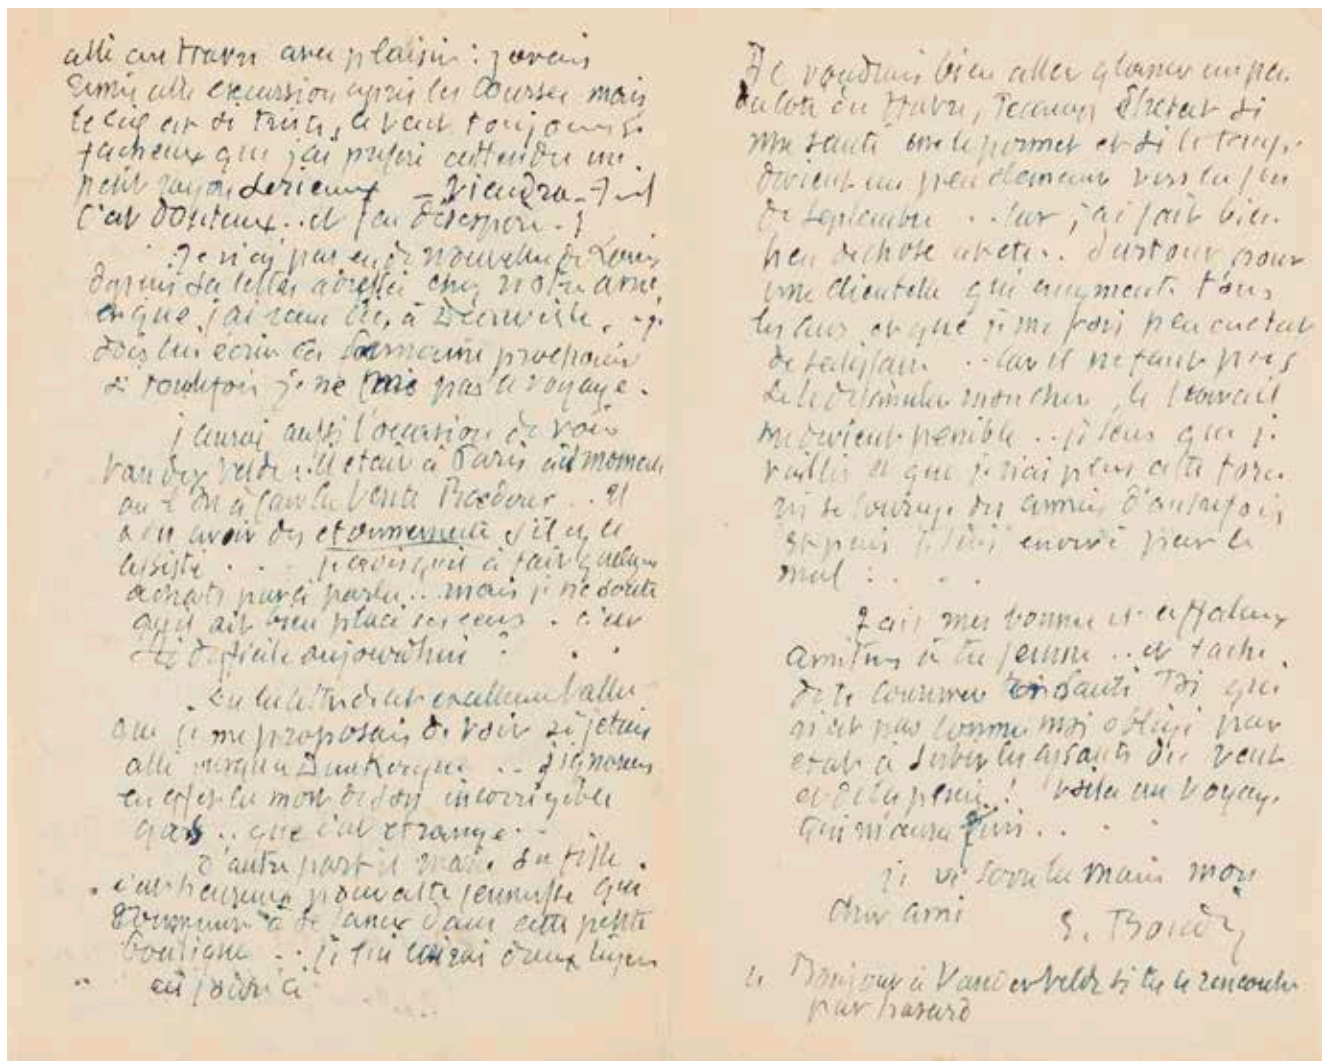 allé au Havre avec plaisir : j'avais
cette excursion après les Courses mais
le ciel est si triste, le vent toujours si
facheux que j'ai préféré attendre un
petit rayon serieux _ Viendra-t-il
c'est douteux.. et j'en désespère.!
Je n'ai pas eu de nouvelles de Louis
depuis sa lettre adressée chez notre ami
et que j'ai à Deauville. je
dois lui ecrire la semaine prochaine
si toutefois je ne fais pas ce voyage.
j'aurai aussi l'occasion de voir
Van der Velde : il etait à Paris au moment
ou l'on a fait la Vente .. Il
a du avoir des etonnements s'il y a
assisté . . . à faire quelques
achats par ci par la.. mais je ne doute
qu'il ait bien placé ses ecus . c'est
si difficile aujourd'hui ? . .
excellent
que je me proposais de voir si j'etais
allé jusqu'a Dunkerque .. j'ignorais
en effet la mort de son incorrigible
gars .. que c'est etrange..
D'autre part il marie sa fille.
c'est heureux pour cette jeunesse que
dans cette petite
boutique .. je lui deux lignes
ces jours ci
Je voudrais bien aller glaner un peu
du coté du Havre, Fecamp Etretat si
ma santé me le permet et si le temps
devient un peu clement vers la fin
de septembre .. Car j'ai fait bien
peu de chose cet eté.. surtout pour
une clientele qui augmente tous
les ans et que je me vois peu en etat
de satisfaire .. Car il ne faut pas
se le dissimuler mon cher, le travail
me devient penible .. je sens que je
vieillis et que je n'ai plus cette force
ni ce courage des années d'autrefois
et puis je suis par le
mal : . . .
Fais mes bonnes et affectueuses
amitiés à ta femme .. et tache
de te conserver en santé Toi qui
n'est pas comme moi obligé par
etat à subir les assauts du vent
et de la pluie ! voila un voyage
qui m'aura . . .
je te serre la main mon
cher ami
E. Boudin
Bonjour à Vander Velde si tu le rencontres
par hasard